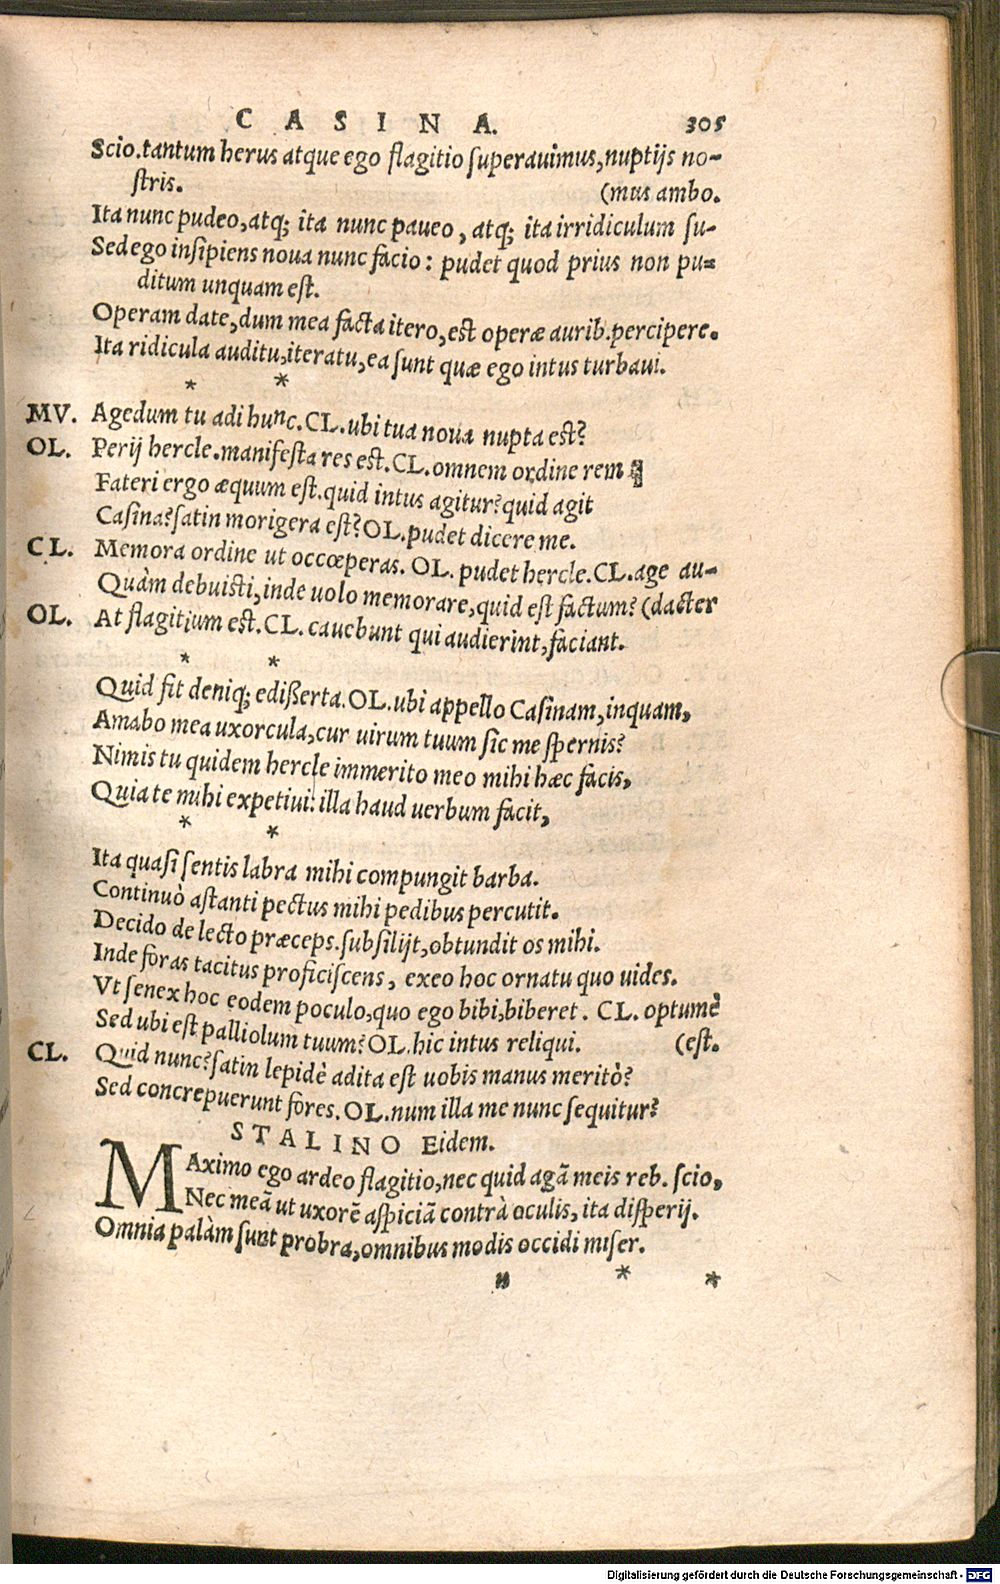 CASINA. 305
Scio.tantum herus atque ego flagitio superauimus,nuptijs no-
stris. (mus ambo.
Ita nunc pudeo,atq; ita nunc paueo, atq; ita irridiculum su-
Sed ego insipiens noua nunc facio: pudet quod prius non pu-
ditum unquam est.
Operam date,dum mea facta itero,est operæ aurib.percipere.
Ita ridicula auditu,iteratu,ea sunt quæ ego intus turbaui.
* *
MV. Agedum tu adi hunc.CL.ubi tua noua nupta est?
OL. Perij hercle.manifesta res est.CL.omnem ordine rem
Fateri ergo æquum est.quid intus agitur?quid agit
Casina?satin morigera est?OL.pudet dicere me.
CL. Memora ordine ut occœperas. OL. pudet hercle.CL.age au-
Quàm debuisti,inde uolo memorare,quid est factum? (dacter
OL. At flagitium est.CL.cauebunt qui audierint,faciant.
* *
Quid fit deniq; edißerta.OL.ubi appello Casinam,inquam,
Amabo mea uxorcula,cur uirum tuum sic me spernis?
Nimis tu quidem hercle immerito meo mihi hæc facis,
Quia te mihi expetiui:illa haud uerbum facit,
* *
Ita quasi sentis labra mihi compungit barba.
Continuò astanti pectus mihi pedibus percutit.
Decido de lecto præceps.subsilijt,obtundit os mihi.
Inde foras tacitus proficiscens, exeo hoc ornatu quo uides.
Vt senex hoc eodem poculo,quo ego bibi,biberet. CL. optumè
Sed ubi est palliolum tuum?OL.hic intus reliqui. (est.
CL. Quid nunc?satin lepidè adita est uobis manus meritò?
Sed concrepuerunt fores.OL.num illa me nunc sequitur?
STALINO Eidem.
MAximo ego ardeo flagitio,nec quid agã meis reb. scio,
Nec meã ut uxorẽ aspiciã contrà oculis, ita disperij.
Omnia palàm sunt probra,omnibus modis occidi miser.
* * *
Digitalisierung gefördert durch die Deutsche Forschungsgemeinschaft - DFG